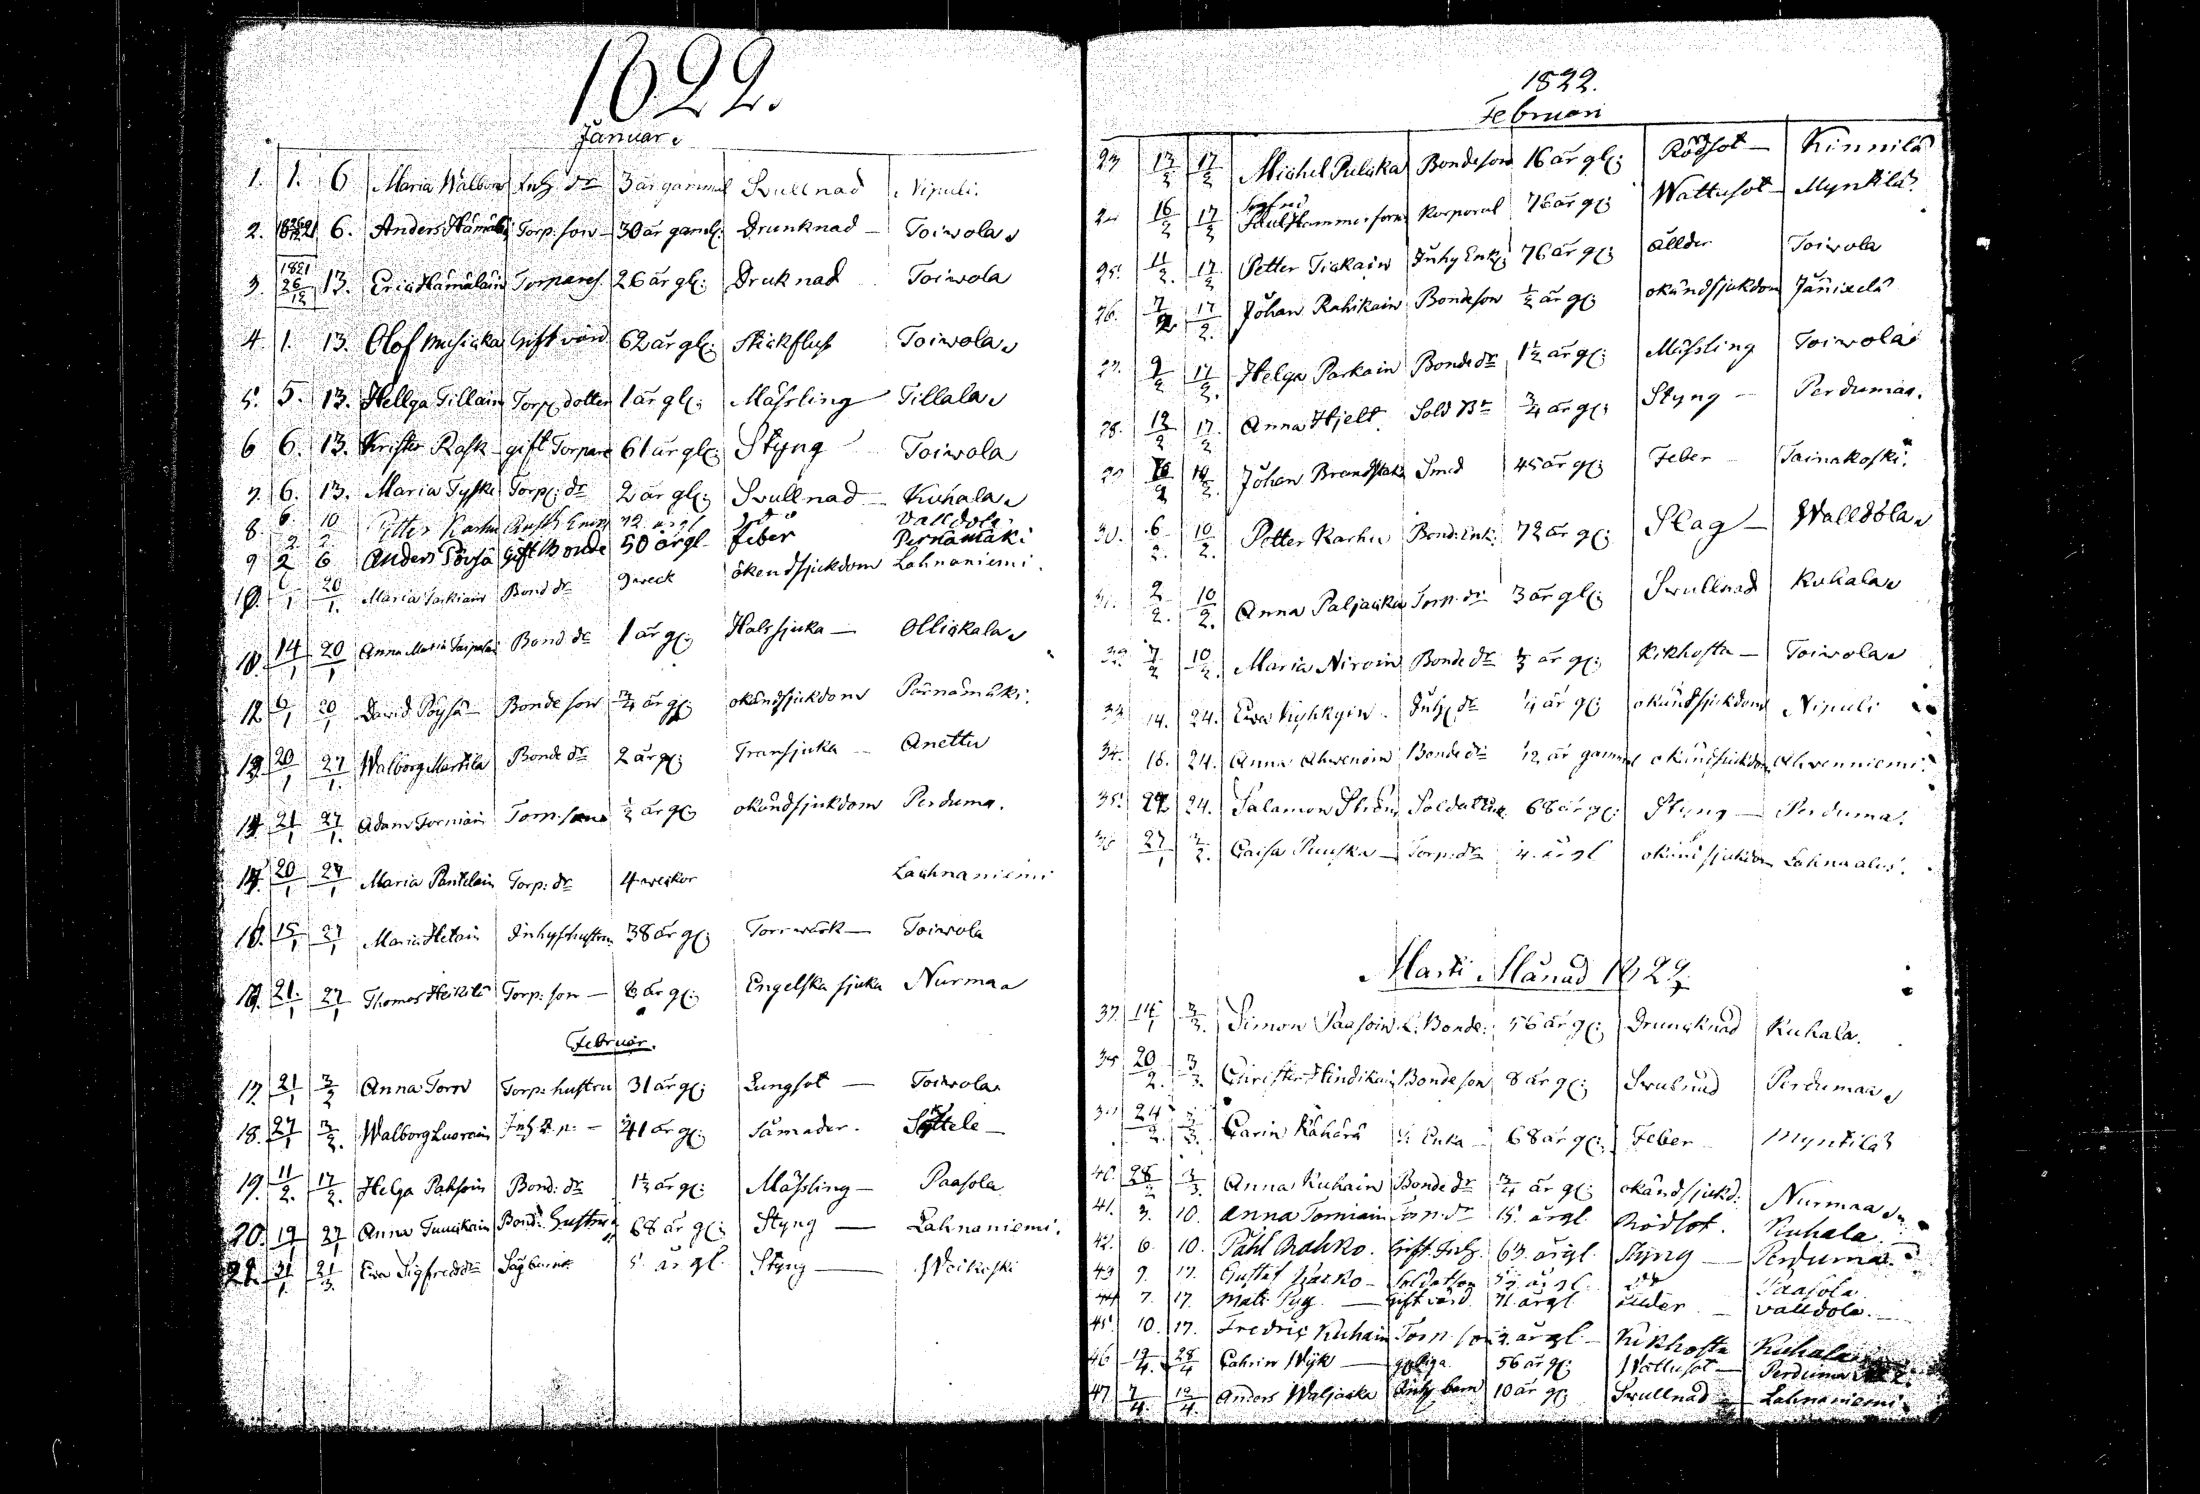 1822.
Januar.
1. 1. 6 Maria Walbor Inh dr 3 år gammal Svullnad Nipuli.
2. 1821 6. Anders Hämäläi Torp: son 30 år gaml: Drunknad Toiwola
3. 1821 26/12 13. Eric Hämäläin Torpares. 26 år gl: Druknad Toiwola
4. 1. 13. Olof Musicka Gift värd 62 år gl: Stickfluss Toiwola
5. 5. 13. Hellga Tillain Torp dotter 1 år gl: Mässling Tillala
6 6. 13. Krister Rask gift Torpare 61 år gl: Styng Toiwola
7. 6. 13. Maria Tyski Torp: dr 2 år gl: Svullnad Kuhala
8. 6/2 10/2 Petter Karhu Enk 72 år gl Valldola
9 2 6 Anders Pöysä Gift Bonde 50 år gl feber Pernämäki
10. 20/1. Maria Bond dr 9 weck okendsjuckdom Lahnaniemi.
14/1 20/1 Anna Maria Taipalai Bond dr 1 år gl: Halssjuka Ollickala
12 6/1 20/1 David Pöysä Bonde son 3/4 år gl: okändsjuckdom Pärnämäki.
13. 20/1 27/1. Walborg Marttila Bonde dr 2 år gl: Transjuka Anettu
14. 21/1 27/1. Adam Torniain Torp. son 1/2 år gl: okändsjuckdom Perduma.
20/1 27/1 Maria Pantelain Torp: dr 4 weckor Lachnaniemi
16. 15/1 27/1 Maria Hetain Inhyshustru 38 år gl: Torrwärk Toiwola
21./1 27/1 Thomas Heikilä Torp: son 6 år gl: Engelska sjuka Nurmaa
Februar.
17. 21/1 3/2 Anna Torn Torp: hustru 31 år gl: Lungsot Toiwola
18. 27/1 3/2. Walborg Luorain Inh 41 år gl:
19. 11/2. 17/2. Helga Paksoin Bond: dr 1 1/2 år gl: Mässling Paasola
20. 19/1 27/1 Anna Tuuckain Bond: hustru 68 år gl: Styng Lahnaniemi.
21. 31/1 21/3. Ewa Sigfredsdr 5 år gl. Styng Weikoski
1822.
Februari
23 13/2 17/2 Michel Pulcka Bondeson 16 år gl: Rödsot Kinnilä
24 16/2 17/2 Hammarson Korporal 76 år gl: Wattusot Myntilä
25. 11/2. 17/2 Petter Tickain Inhy Enk: 76 år gl: ållder Toiwola
26. 7/2 17/2. Johan Rahikain Bondeson 1/2 år gl: okändsjukdom Jänixelä
27. 9/2 17/2. Helga Parkain Bonde dr 1 1/2 år gl: Mässling Toiwola
28. 12/2 17/2 Anna Hjelt Sold Br 3/4 år gl: Styng Perdumaa.
29 Johan Brandstak Smed 45 år gl: Feber Tainakoski.
30. 6/2. 10/2. Petter Karhu Bond: Enk: 72 år gl: Slag Walldola
31. 2/2. 10/2. Anna Paljacka Torp. dr 3 år gl: Swullnad Kuhala
32. 7/2 10/2. Maria Niroin Bonde dr år gl: Kikhosta Toiwola
33 14. 24. Ewa Inh dr 1/4 år gl: okändsjukdom Nipuli
34. 16. 24. Anna Ahwenain Bonde dr 1/2 år gammal okändsjukdom Ahwenniemi.
35. 22 24. Salamon Ström Soldat 68 år gl: Styng Perduma.
36 27/1 3/2. Caisa Puuska Torp: dr 4. år gl okändsjukdom Lahnaalus.
Marti Månad 1822
37. 14/1 3/3. Simon Paasoin Bonde: 56 år gl: Drungknad Kuhala.
38 20/2. 3/3. Christer Hindikain Bondeson 8 år gl: Swulnad Perdumaa
39 24/2. 3/3. Carin Kähärä Enka 68 år gl: Feber Myntilä
40. 28/2 3/3. Anna Kuhain Bonde dr 3/4 år gl: okändsjukd: Nurmaa
41. 3. 10. Anna Torniain Torp. dr 15. år gl. Rödsot. Kuhala.
42. 6. 10. Påhl Mahko. Gift. Inh. 63. år gl. Styng Perduma.
43 9. 17. Gustaf Soldatson år gl. Paasola.
44 7. 17. Mats Gift värd 71. år gl ållder Valldola.
45. 10. 17. Fredric Kuhain Torp. son 2. år gl Kikhosta Kuhala
46 19/4. 28/4 Cahrin Wijk Piga 56 år gl: Wattusot Perduma
47 7/4. 19/4. Anders Waljacka Inhy barn 10 år gl: Swullnad Lahnaniemi